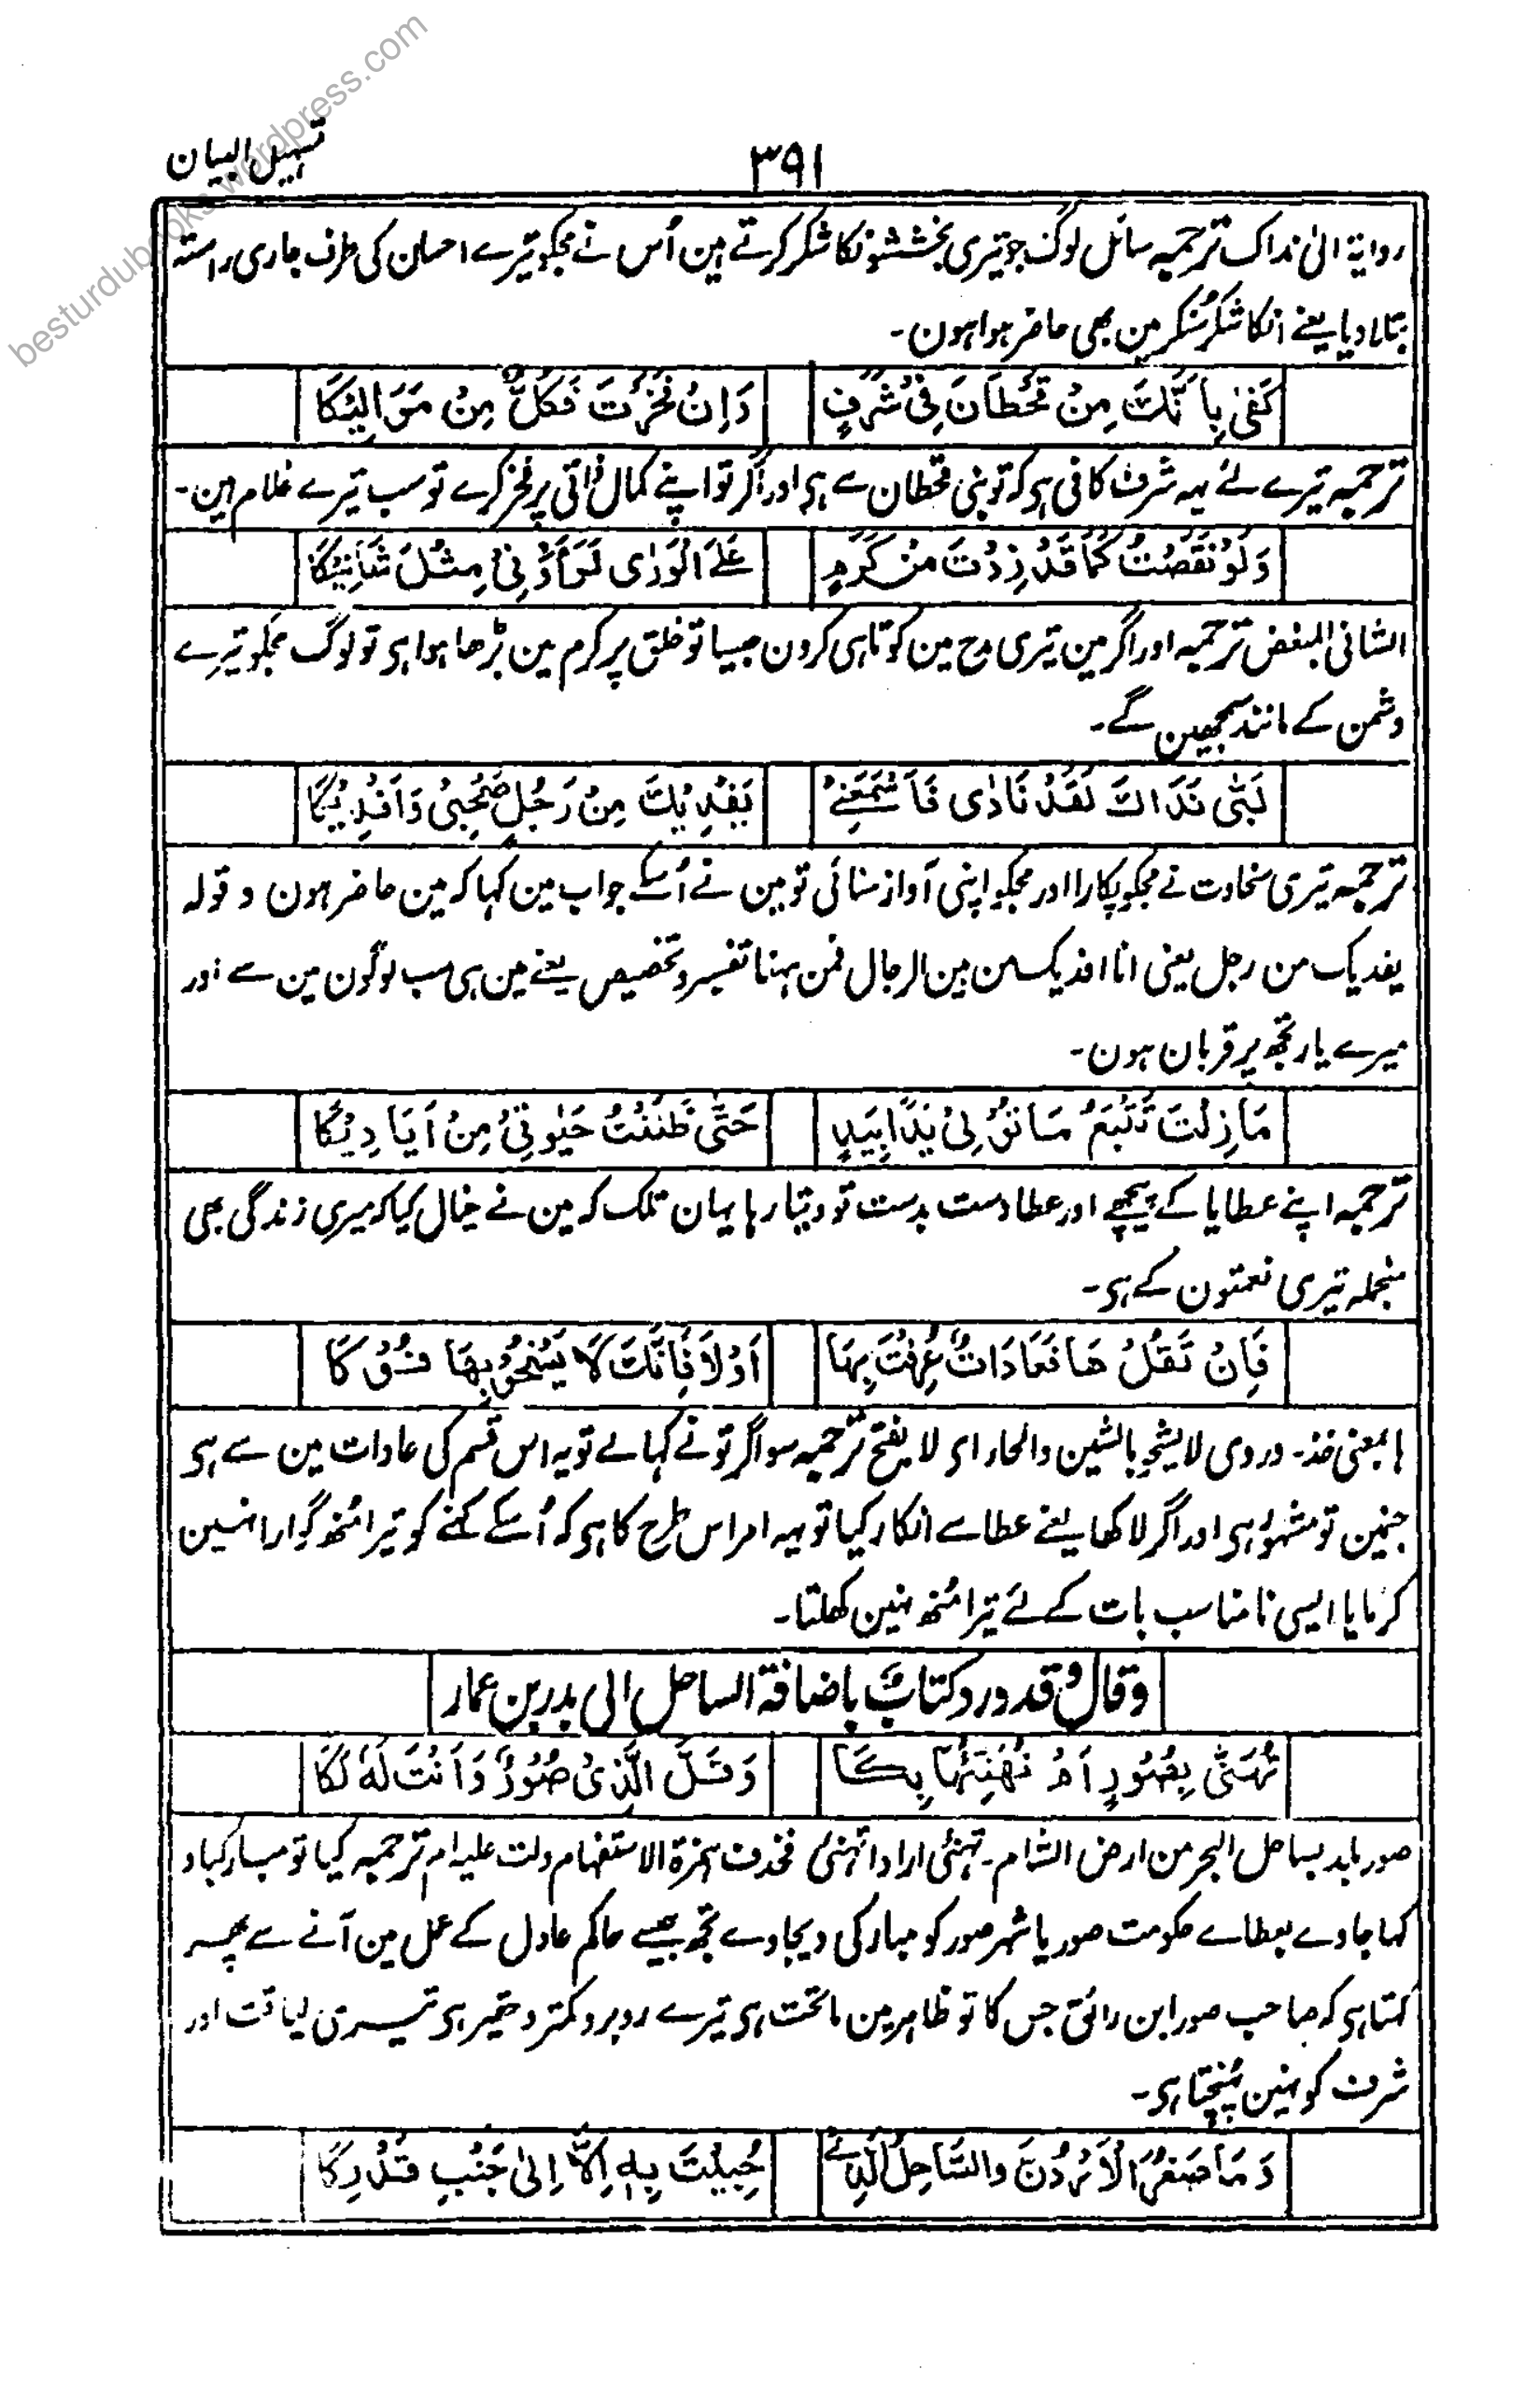 besturdubooks.wordpress.com
تسہیل البیان
۳۹۱
روایۃ الیٰ نداک ترجمہ سائل لوگ جو تیری بخششونکا شکر کرتے ہین اُس نے مجکو تیرے احسان کی طرف جاری راستہ
بتلا دیا یعنے انکا شکر سُنکر مین بھی حاضر ہوا ہون۔
كَفیٰ بِاَنَّكَ مِنْ قَحْطَانَ فِیْ شَرَفٍ وَاِنْ فَخَرْتَ فَكُلٌّ مِنْ مَوَالِیْكَا
ترجمہ تیرے لئے یہہ شرف کافی ہی کہ تو بنی قحطان سے ہی اور اگر تو اپنے کمال ذاتی پر فخر کرے تو سب تیرے غلام ہین۔
وَلَوْ نَقَصْتُ كَمَا قَدْ زِدْتَ مِنْ كَرَمٍ عَلَے الْوَرٰی لَرَأَوْنِیْ مِثْلَ شَانِیْكَا
الشانی المبغض ترجمہ اور اگر مین تیری مدح مین کوتاہی کرون جیسا تو خلق پر کرم مین بڑھا ہوا ہی تو لوگ مجکو تیرے
دشمن کے مانند سمجھین گے۔
لَبّٰی نَدَاكَ لَقَدْ نَادٰی فَاَسْمَعَنِیْ یَفْدِیْكَ مِنْ رَجُلٍ صَحْبِیْ وَاَفْدِیْكَا
ترجمہ تیری سخاوت نے مجکو پکارا اور مجکو اپنی آواز سنائی تو مین نے اُسکے جواب مین کہا کہ مین حاضر ہون و قولہ
یفدیک من رجل یعنی انا افدیک من بین الرجال فمن ہہنا تفسیر و تخصیص یعنے مین ہی سب لوگون مین سے اور
میرے یار تجھ پر قربان ہون۔
مَازِلْتَ تُتْبِعُ مَا تُوْلِیْ یَدًا بِیَدٍ حَتّٰی ظَنَنْتُ حَیٰوتِیْ مِنْ اَیَادِیْكَا
ترجمہ اپنے عطایا کے پیچھے اور عطا دست بدست تو دیتا رہا یہان تلک کہ مین نے خیال کیا کہ میری زندگی بھی
منجملہ تیری نعمتون کے ہی۔
فَاِنْ تَقُلْ هَا فَعَادَاتٌ عُرِفْتَ بِهَا اَوْ لَا فَاِنَّكَ لَا یَسْخُوْ بِهَا فُوْكَا
ہا بمعنی خذ۔ وروی لا یشحو بالشین والحاء ای لا یفتح ترجمہ سو اگر تو نے کہا لے تو یہ اس قسم کی عادات مین سے ہی
جنمین تو مشہور ہی اور اگر لا کہا یعنے عطا سے انکار کیا تو یہہ امر اس طرح کا ہی کہ اُسکے کہنے کو تیرا مُنھ گوارا نہین
کرتا یا ایسی نامناسب بات کے لئے تیرا مُنھ نہین کھلتا۔
وقال وقد ورد کتاب باضافۃ الساحل الی بدر بن عمار
تُهَنّٰی بِصُوْرٍ اَمْ نُهَنِّئُهَا بِكَا وَقَلَّ الَّذِیْ صُوْرٌ وَاَنْتَ لَهٗ لَكَا
صور بلد بساحل البحر من ارض الشام۔ تہنئ اراد اتہنئ فحذف ہمزۃ الاستفہام دلت علیہ ام ترجمہ کیا تو مبارکباد
کہا جاوے بعطاے حکومت صور یا شہر صور کو مبارکی دیجاوے تجھ جیسے حاکم عادل کے عمل مین آنے سے پھر
کہتا ہی کہ صاحب صور ابن رائق جس کا تو ظاہر مین ماتحت ہی تیرے روبرو کمتر و حقیر ہی تیری لیاقت اور
شرف کو نہین پہنچتا ہی۔
وَمَا صَغُرَ الْاُرْدُنُّ وَالسَّاحِلُ الَّذِیْ حُبِیْتَ بِهٖ اِلَّا اِلیٰ جَنْبِ قَدْرِكَا